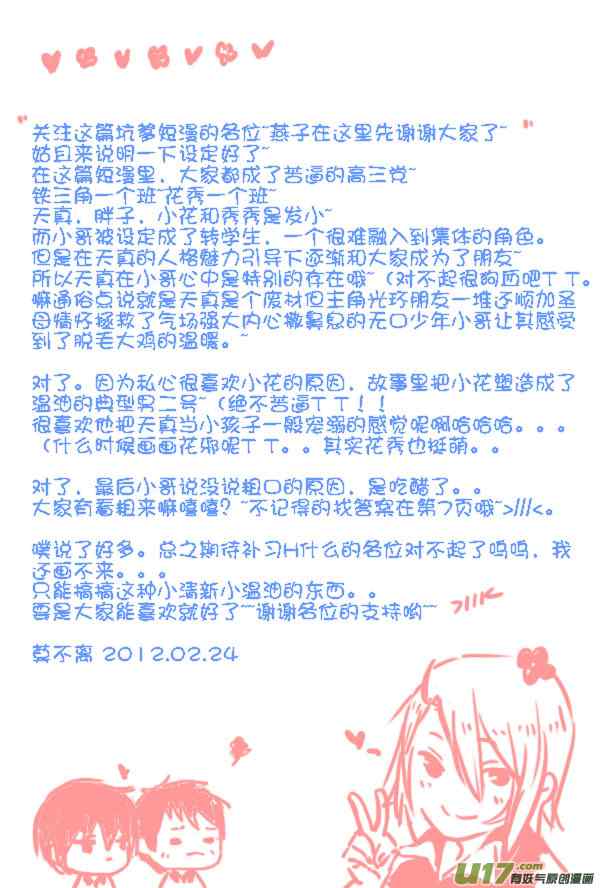 关注这篇坑爹短漫的各位~燕子在这里先谢谢大家了~
姑且来说明一下设定好了~
在这篇短漫里，大家都成了苦逼的高三党~
铁三角一个班~花秀一个班~
天真，胖子，小花和秀秀是发小~
而小哥被设定成了转学生，一个很难融入到集体的角色。
但是在天真的人格魅力引导下逐渐和大家成为了朋友~
所以天真在小哥心中是特别的存在哦~（对不起很狗血吧T T。
嘛通俗点说就是天真是个废材但主角光环朋友一堆还顺加圣
母情怀拯救了气场强大内心撒鼻息的无口少年小哥让其感受
到了脱毛大鸡的温暖。~
对了。因为私心很喜欢小花的原因，故事里把小花塑造成了
温油的典型男二号~（绝不苦逼T T！！
很喜欢他把天真当小孩子一般宠溺的感觉呢啊哈哈哈。。。
（什么时候画画花邪呢T T。。其实花秀也挺萌。。
对了，最后小哥说没说粗口的原因，是吃醋了。。
大家有看粗来嘛嘻嘻？~不记得的找答案在第7页哦~>///<。
噗说了好多。总之期待补习H什么的各位对不起了呜呜，我
还画不来。。。
只能搞搞这种小清新小温油的东西。。
要是大家能喜欢就好了~~谢谢各位的支持哟~~
莫不离 2012.02.24
U17.com
有妖气原创漫画